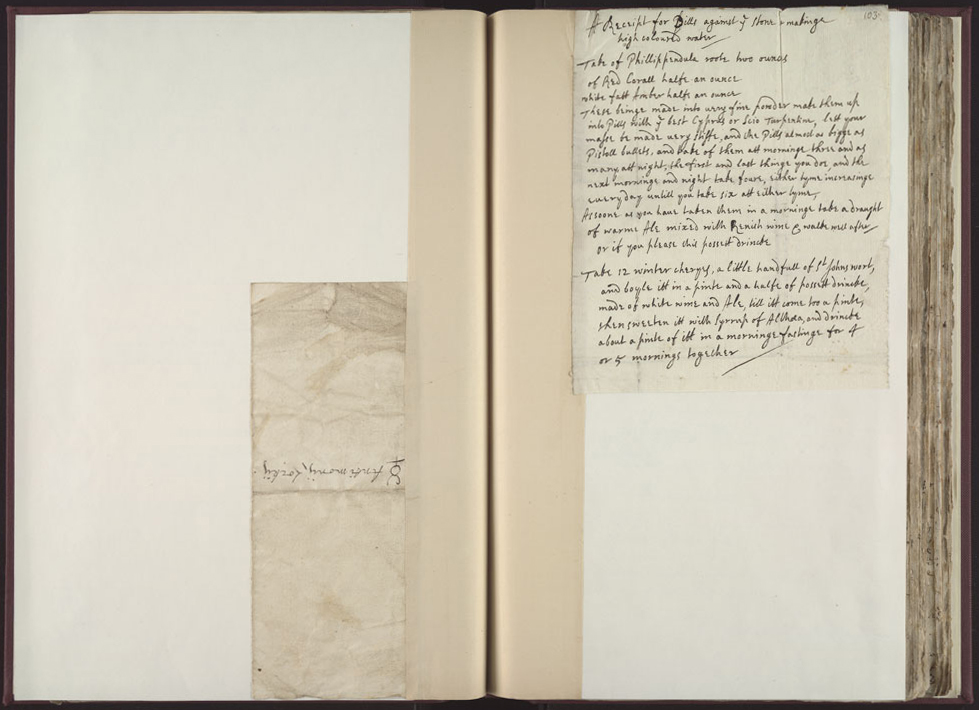 Antimonij
103
A Receipt for Pills against yͤ stone & makinge
high coloured water
Take of Phillippendula roote two ounces
of Red Corall halfe an ounce
white fatt Amber halfe an ounce
These beinge made into very fine powder make them up
into Pills with yͤ best Cyprus or Scio Turpentine, lett your
masse be made very stiffe, and the Pills almost as bigge as
Pistoll bullets, and take of them att morninge three and as
many att night, the first and last thinge you doe, and the
next morninge and night take foure, either tyme increasinge
every day untill you take six att either tyme,
Assoone as you have taken them in a morninge take a draught
of warme Ale mixed with Renish wine & walke well after
or if you please this possett drincke
Take 12 winter cheryes, a little handfull of Sᵗ Johns wort,
and boyle itt in a pinte and a halfe of possett drincke,
made of white wine and Ale, till itt come too a pinte,
then sweeten itt with Syrrup of Althea, and drincke
about a pinte of itt in a morninge fastinge for 4
or 5 mornings together